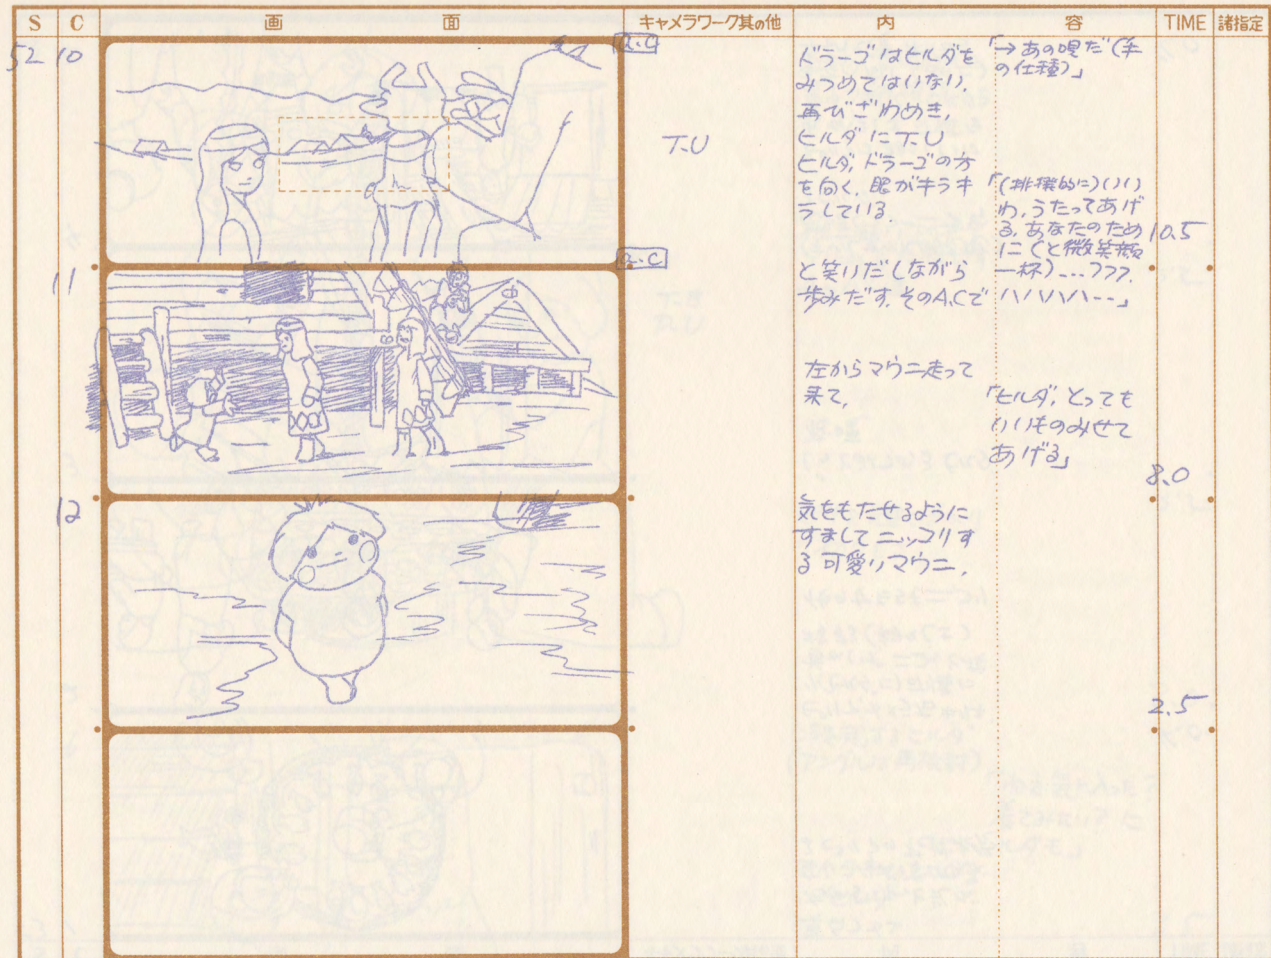 S C 画 面 キャメラワーク其の他 内 容 TIME 諸指定
52 10
T.U
ドラーゴはヒルダを
みつめてはいない。
再びざわめき。
ヒルダにT.U
ヒルダ、ドラーゴの方
を向く。眼がキラキ
ラしている。
と笑いだしながら
歩みだす。そのA.Cで
「→あの唄だ(羊
の仕種)」
「(挑撲的に)いい
わ、うたってあげ
る。あなたのため
に(と微笑顔
一杯)...フフフ.
ハハハハ--」
10.5
11
左からマウニ走って
来て、
「ヒルダ、とっても
いいものみせて
あげる」
8.0
12
気をもたせるように
すましてニッコリす
る可愛いマウニ。
2.5